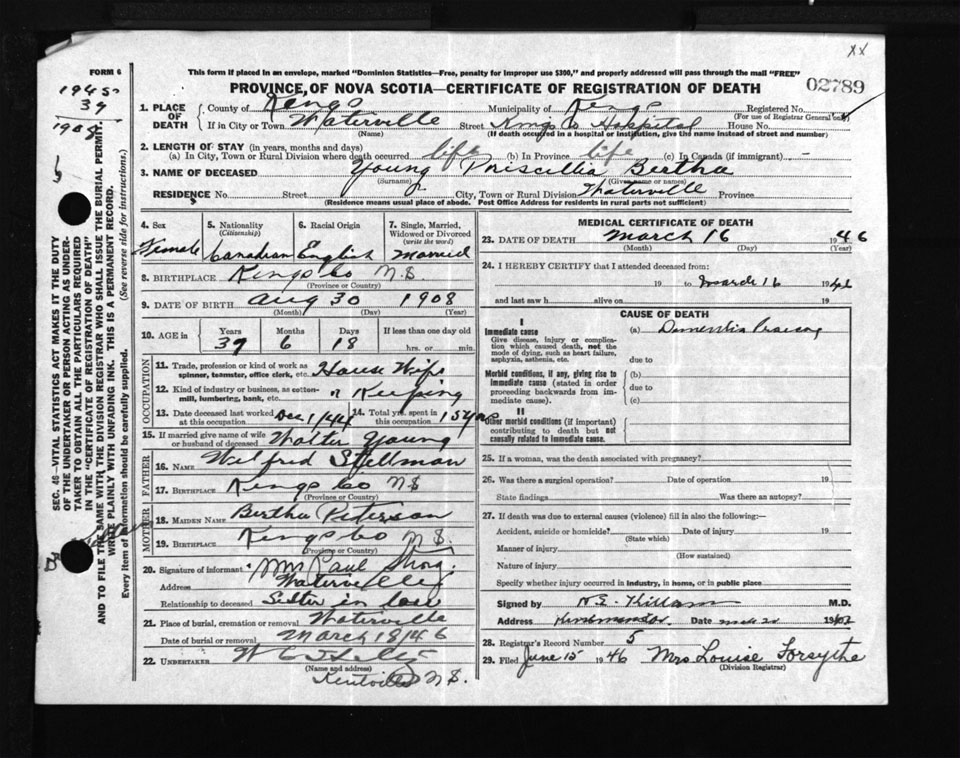 xx
FORM 6
This form if placed in an envelope, marked "Dominion Statistics—Free, penalty for improper use $300," and properly addressed will pass through the mail "FREE"
PROVINCE OF NOVA SCOTIA—CERTIFICATE OF REGISTRATION OF DEATH
02789
1945
39
1908
1. PLACE OF DEATH County of Kings Municipality of Kings Registered No.
(For use of Registrar General only)
If in City or Town Waterville Street Kings Co Hospital House No.
(Name) (If death occurred in a hospital or institution, give the name instead of street and number)
2. LENGTH OF STAY (in years, months and days)
(a) In City, Town or Rural Division where death occurred life (b) In Province life (c) In Canada (if immigrant) -
3. NAME OF DECEASED Young Priscillia Bertha
(Surname) (Given name or names)
RESIDENCE No. Street City, Town or Rural Division Waterville Province
(Residence means usual place of abode. Post Office Address for residents in rural parts not sufficient)
SEC. 46—VITAL STATISTICS ACT MAKES IT THE DUTY
OF THE UNDERTAKER OR PERSON ACTING AS UNDER-
TAKER TO OBTAIN ALL THE PARTICULARS REQUIRED
IN THE "CERTIFICATE OF REGISTRATION OF DEATH"
AND TO FILE THE SAME WITH THE DIVISION REGISTRAR WHO SHALL ISSUE THE BURIAL PERMIT.
WRITE PLAINLY WITH UNFADING INK. THIS IS A PERMANENT RECORD.
Every item of information should be carefully supplied. (See reverse side for instructions.)
4. Sex
Female
5. Nationality
(Citizenship)
Canadian
6. Racial Origin
English
7. Single, Married,
Widowed or Divorced
(write the word)
Married
8. BIRTHPLACE Kings Co N.S
(Province or Country)
9. DATE OF BIRTH Aug 30 1908
(Month) (Day) (Year)
10. AGE in Years Months Days If less than one day old
37 6 18 hrs. or min.
OCCUPATION
11. Trade, profession or kind of work as
spinner, teamster, office clerk, etc. House Wife
12. Kind of industry or business, as cotton-
mill, lumbering, bank, etc. " Keeping
13. Date deceased last worked
at this occupation Dec 1/44
14. Total yrs. spent in
this occupation 15 yrs
15. If married give name of wife
or husband of deceased Walter Young
FATHER
16. NAME Wilfred Spellman
17. BIRTHPLACE Kings Co N S
(Province or Country)
MOTHER
18. MAIDEN NAME Bertha Peterson
19. BIRTHPLACE Kings Co N.S.
(Province or Country)
20. Signature of informant Mrs Paul
Address Waterville
Relationship to deceased Sister in law
21. Place of burial, cremation or removal Waterville
Date of burial or removal March 18/46
22. UNDERTAKER W
(Name and address)
Kentville N S.
MEDICAL CERTIFICATE OF DEATH
23. DATE OF DEATH March 16 1946
(Month) (Day) (Year)
24. I HEREBY CERTIFY that I attended deceased from:
19 to March 16 1946
and last saw h alive on 19
CAUSE OF DEATH
I
Immediate cause
Give disease, injury or complica-
tion which caused death, not the
mode of dying, such as heart failure,
asphyxia, asthenia, etc.
(a) Dementia Praecox
due to
Morbid conditions, if any, giving rise to
immediate cause (stated in order
proceeding backwards from im-
mediate cause).
(b)
due to
(c)
II
Other morbid conditions (if important)
contributing to death but not
causally related to immediate cause.
25. If a woman, was the death associated with pregnancy?
26. Was there a surgical operation? Date of operation 19
State findings Was there an autopsy?
27. If death was due to external causes (violence) fill in also the following:—
Accident, suicide or homicide? Date of injury 19
(State which)
Manner of injury
(How sustained)
Nature of injury
Specify whether injury occurred in industry, in home, or in public place
Signed by Killam M.D.
Address Date 19
28. Registrar's Record Number 5
29. Filed June 15 1946 Mrs Louise Forsythe
(Division Registrar)